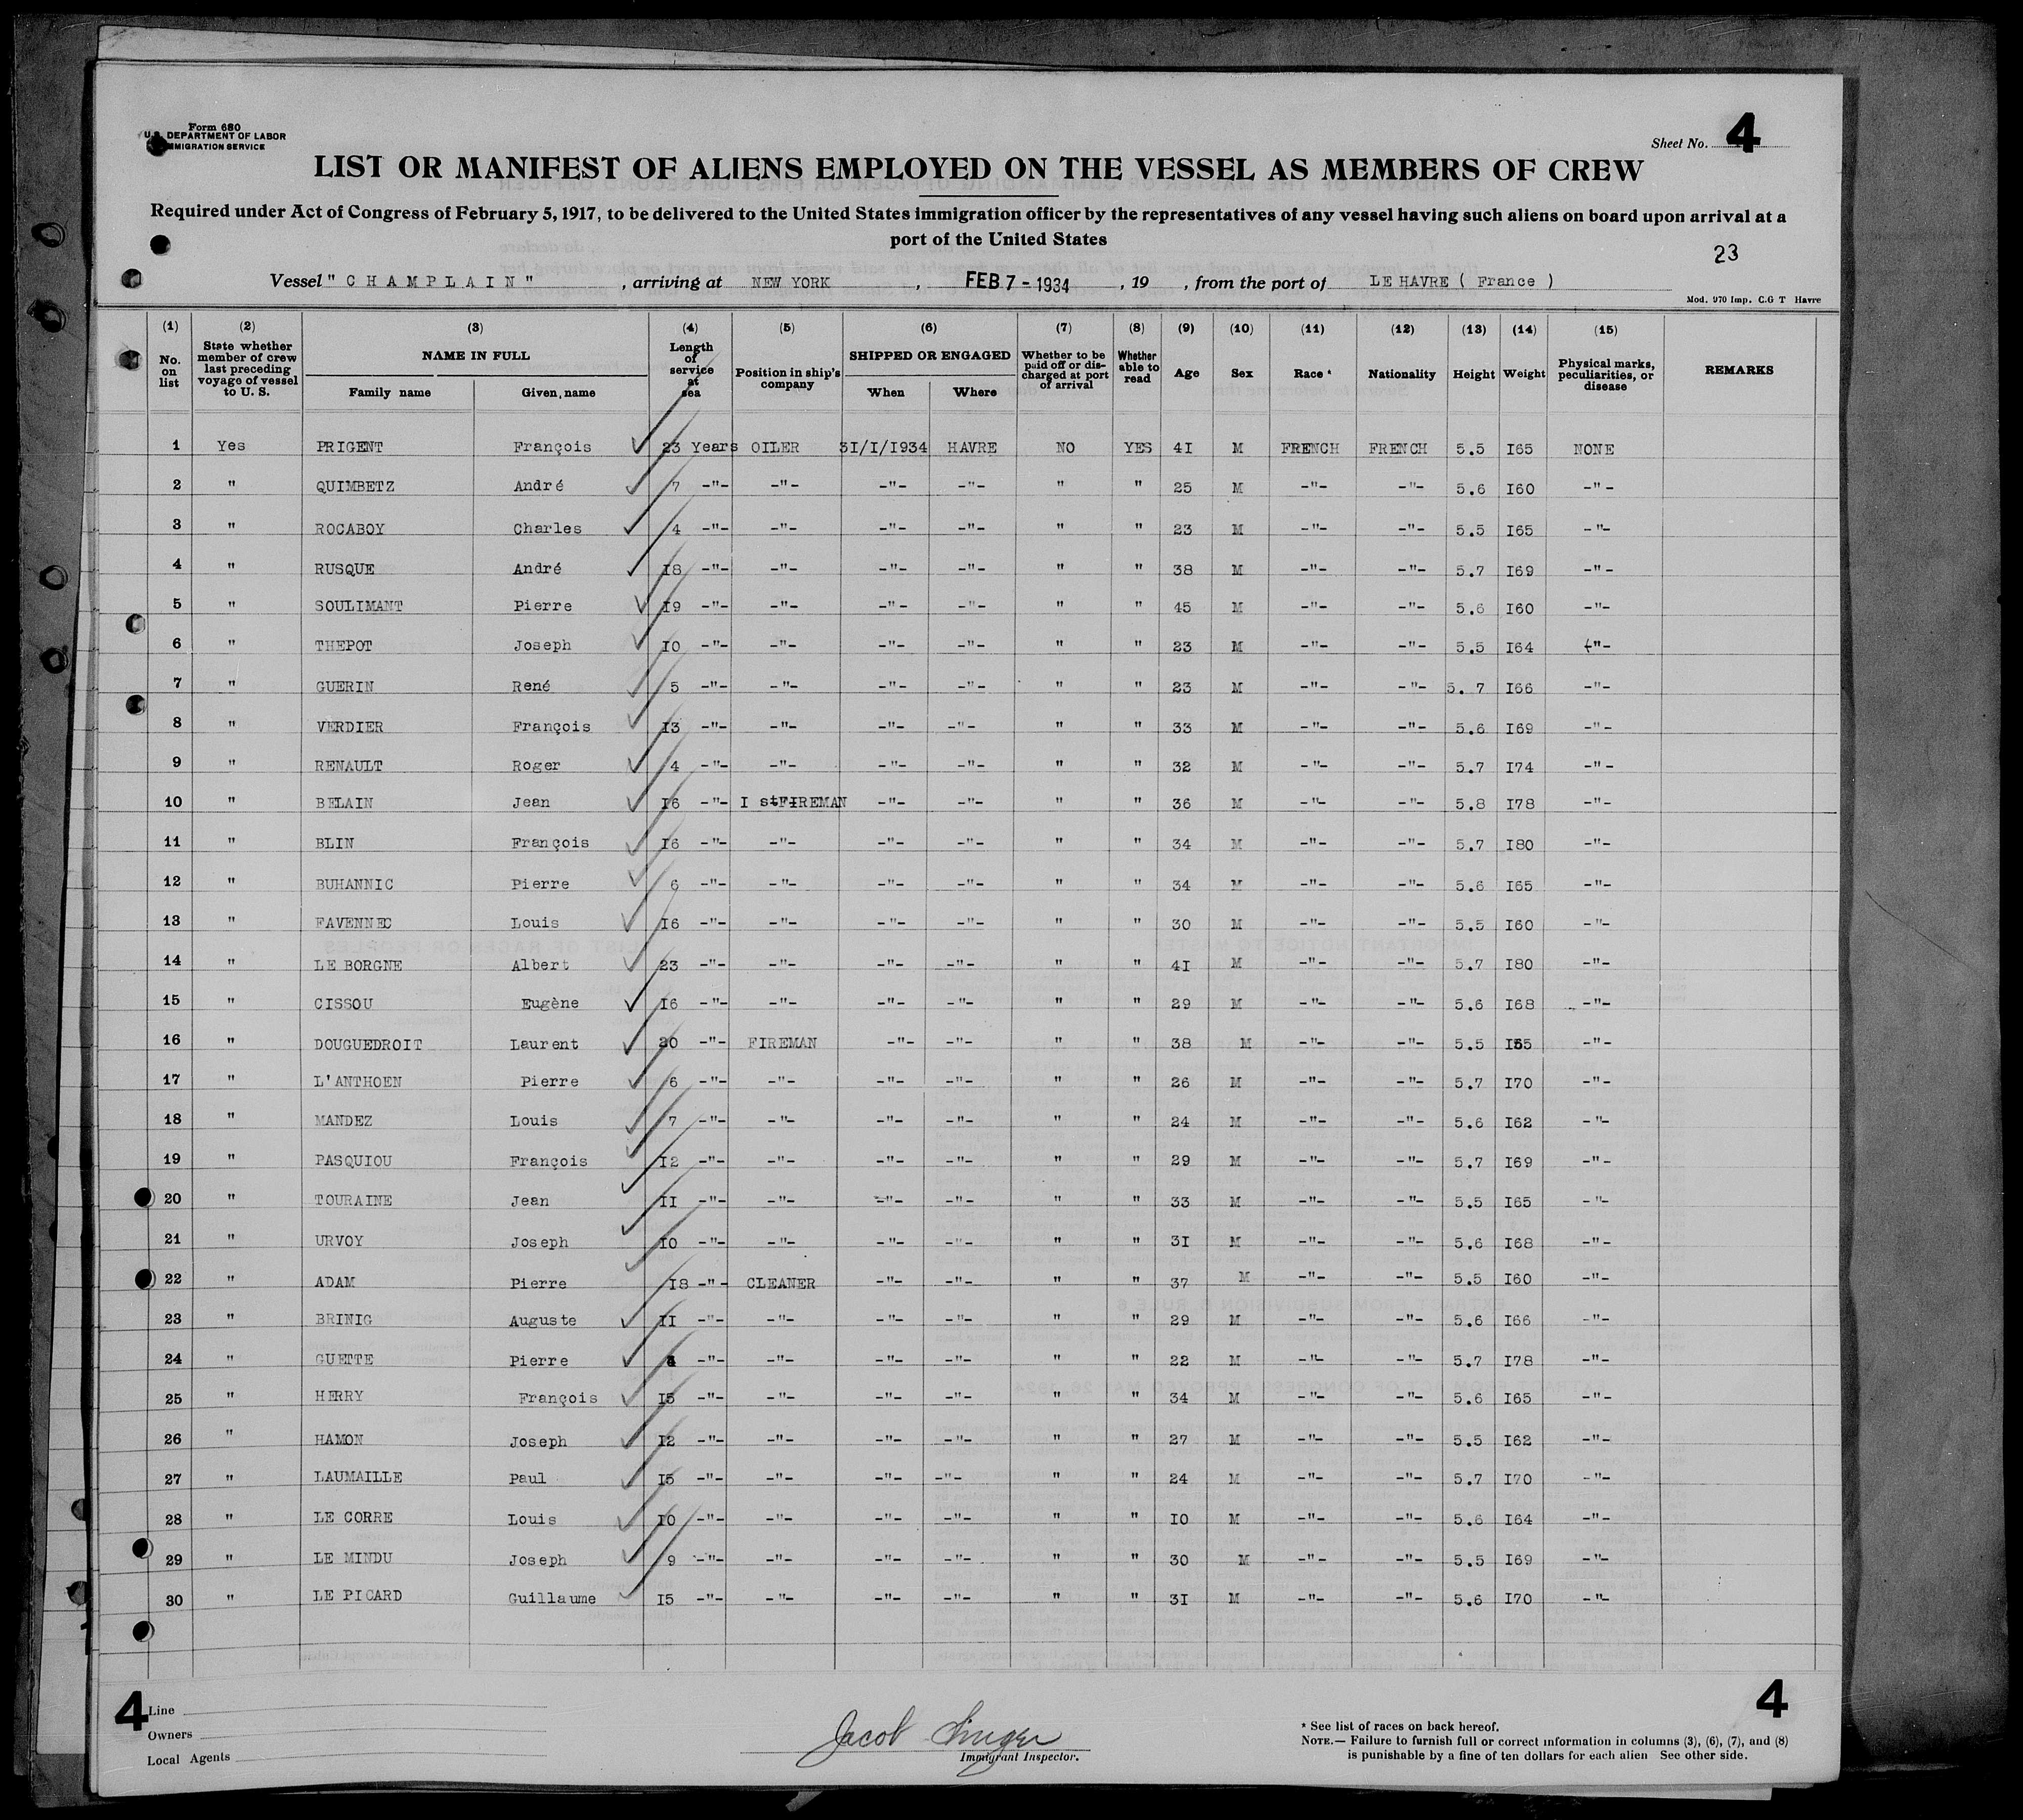 Form 680
U.S. DEPARTMENT OF LABOR
IMMIGRATION SERVICE
Sheet No. 4
LIST OR MANIFEST OF ALIENS EMPLOYED ON THE VESSEL AS MEMBERS OF CREW
Required under Act of Congress of February 5, 1917, to be delivered to the United States immigration officer by the representatives of any vessel having such aliens on board upon arrival at a
port of the United States
23
Vessel " CHAMPLAIN " , arriving at NEW YORK , FEB 7 - 1934 , 19 , from the port of LE HAVRE ( France )
Mod. 970 Imp. C.G T Havre
(1) (2) (3) (4) (5) (6) (7) (8) (9) (10) (11) (12) (13) (14) (15)
No. on list State whether member of crew last preceding voyage of vessel to U. S. NAME IN FULL Length of service at sea Position in ship's company SHIPPED OR ENGAGED Whether to be paid off or discharged at port of arrival Whether able to read Age Sex Race * Nationality Height Weight Physical marks, peculiarities, or disease REMARKS
Family name Given name When Where
1 Yes PRIGENT François 23 Years OILER 3I/I/I934 HAVRE NO YES 4I M FRENCH FRENCH 5.5 I65 NONE
2 " QUIMBETZ André 7 -"- -"- -"- -"- " " 25 M -"- -"- 5.6 I60 -"-
3 " ROCABOY Charles 4 -"- -"- -"- -"- " " 23 M -"- -"- 5.5 I65 -"-
4 " RUSQUE André I8 -"- -"- -"- -"- " " 38 M -"- -"- 5.7 I69 -"-
5 " SOULIMANT Pierre I9 -"- -"- -"- -"- " " 45 M -"- -"- 5.6 I60 -"-
6 " THEPOT Joseph I0 -"- -"- -"- -"- " " 23 M -"- -"- 5.5 I64 -"-
7 " GUERIN René 5 -"- -"- -"- -"- " " 23 M -"- -"- 5. 7 I66 -"-
8 " VERDIER François I3 -"- -"- -"- -"- " " 33 M -"- -"- 5.6 I69 -"-
9 " RENAULT Roger 4 -"- -"- -"- -"- " " 32 M -"- -"- 5.7 I74 -"-
10 " BELAIN Jean I6 -"- I stFIREMAN -"- -"- " " 36 M -"- -"- 5.8 I78 -"-
11 " BLIN François I6 -"- -"- -"- -"- " " 34 M -"- -"- 5.7 I80 -"-
12 " BUHANNIC Pierre 6 -"- -"- -"- -"- " " 34 M -"- -"- 5.6 I65 -"-
13 " FAVENNEC Louis I6 -"- -"- -"- -"- " " 30 M -"- -"- 5.5 I60 -"-
14 " LE BORGNE Albert 23 -"- -"- -"- -"- " " 4I M -"- -"- 5.7 I80 -"-
15 " CISSOU Eugène I6 -"- -"- -"- -"- " " 29 M -"- -"- 5.6 I68 -"-
16 " DOUGUEDROIT Laurent 20 -"- FIREMAN -"- -"- " " 38 M -"- -"- 5.5 -"-
17 " L'ANTHOEN Pierre 6 -"- -"- -"- -"- " " 26 M -"- -"- 5.7 I70 -"-
18 " MANDEZ Louis 7 -"- -"- -"- -"- " " 24 M -"- -"- 5.6 I62 -"-
19 " PASQUIOU François I2 -"- -"- -"- -"- " " 29 M -"- -"- 5.7 I69 -"-
20 " TOURAINE Jean II -"- -"- -"- -"- " " 33 M -"- -"- 5.5 I65 -"-
21 " URVOY Joseph I0 -"- -"- -"- -"- " " 3I M -"- -"- 5.6 I68 -"-
22 " ADAM Pierre I8 -"- CLEANER -"- -"- " " 37 M -"- -"- 5.5 I60 -"-
23 " BRINIG Auguste II -"- -"- -"- -"- " " 29 M -"- -"- 5.6 I66 -"-
24 " GUETTE Pierre -"- -"- -"- -"- " " 22 M -"- -"- 5.7 I78 -"-
25 " HERRY François I5 -"- -"- -"- -"- " " 34 M -"- -"- 5.6 I65 -"-
26 " HAMON Joseph I2 -"- -"- -"- -"- " " 27 M -"- -"- 5.5 I62 -"-
27 " LAUMAILLE Paul I5 -"- -"- -"- -"- " " 24 M -"- -"- 5.7 I70 -"-
28 " LE CORRE Louis I0 -"- -"- -"- -"- " " I0 M -"- -"- 5.6 I64 -"-
29 " LE MINDU Joseph 9 -"- -"- -"- -"- " " 30 M -"- -"- 5.5 I69 -"-
30 " LE PICARD Guillaume I5 -"- -"- -"- -"- " " 3I M -"- -"- 5.6 I70 -"-
4 4
Line
Owners
Local Agents
Jacob Singer
Immigrant Inspector.
* See list of races on back hereof.
NOTE.— Failure to furnish full or correct information in columns (3), (6), (7), and (8)
is punishable by a fine of ten dollars for each alien See other side.